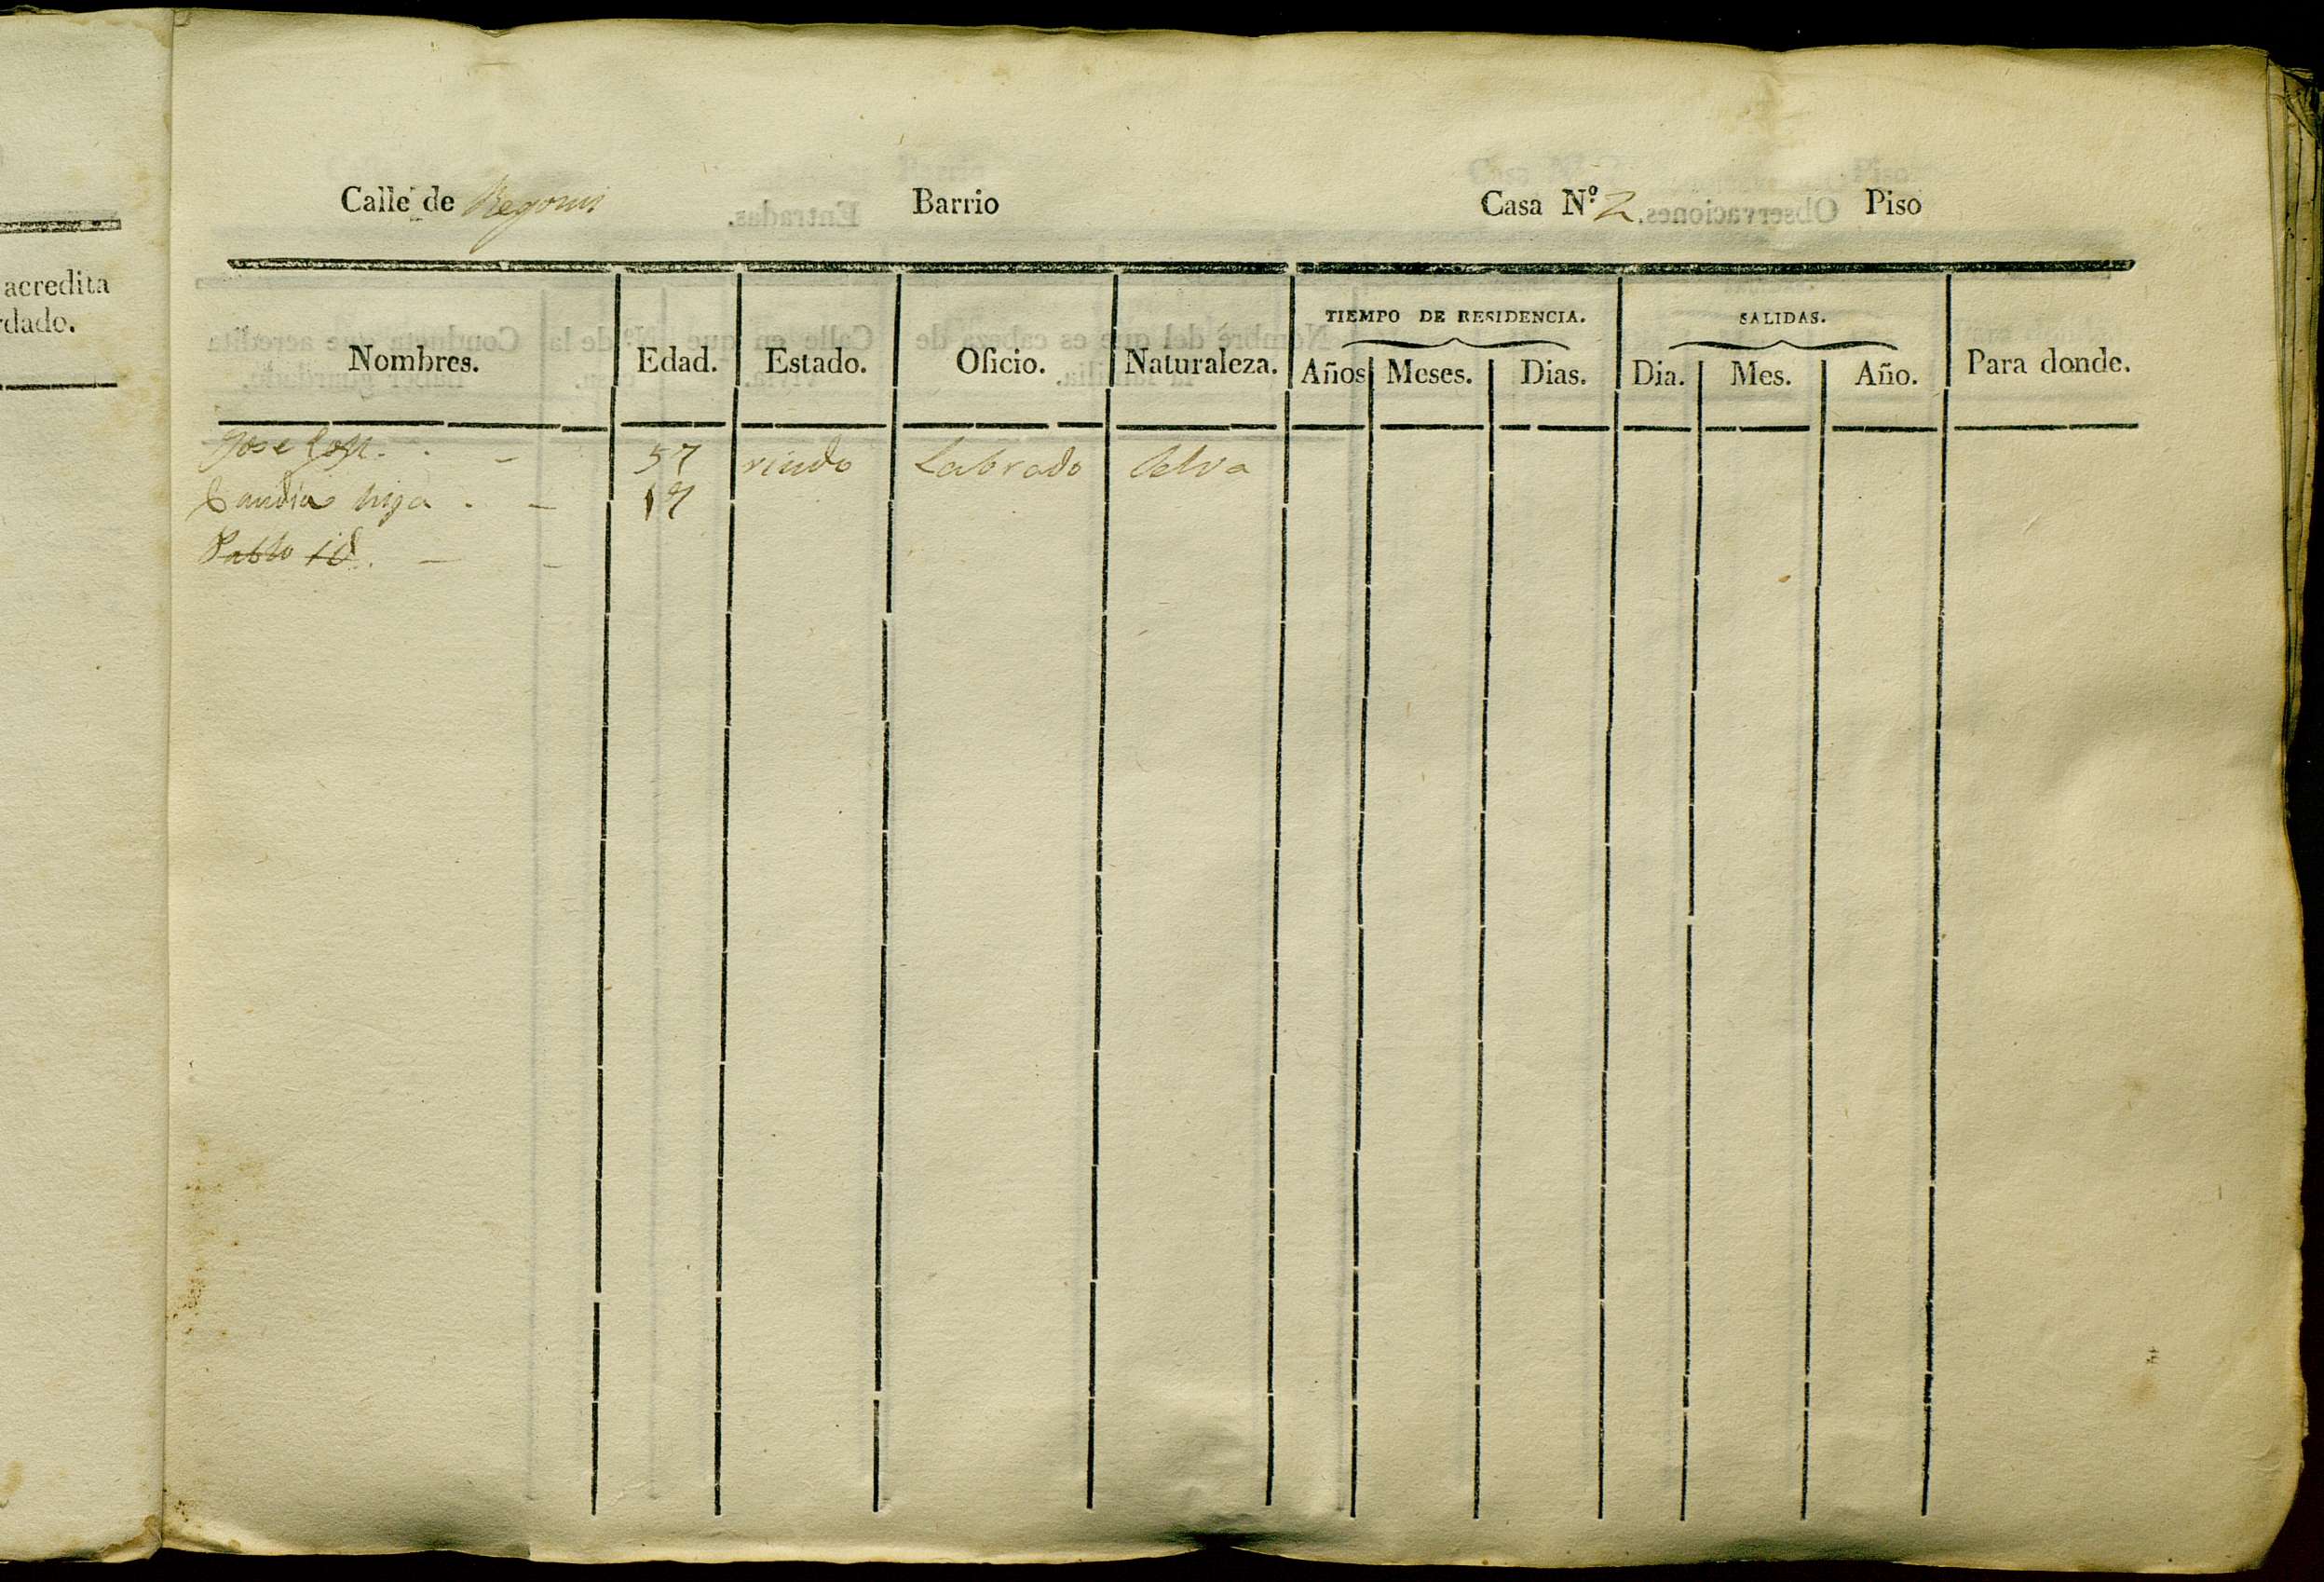 acredita
rdado.
Calle de Regomis Barrio Casa Nº 2 Piso
TIEMPO DE RESIDENCIA. SALIDAS.
Nombres. Edad. Estado. Oficio. Naturaleza. Años Meses. Dias. Dia. Mes. Año. Para donde.
Jose 57 viudo Labrado Selva
hija 19
Pablo id.